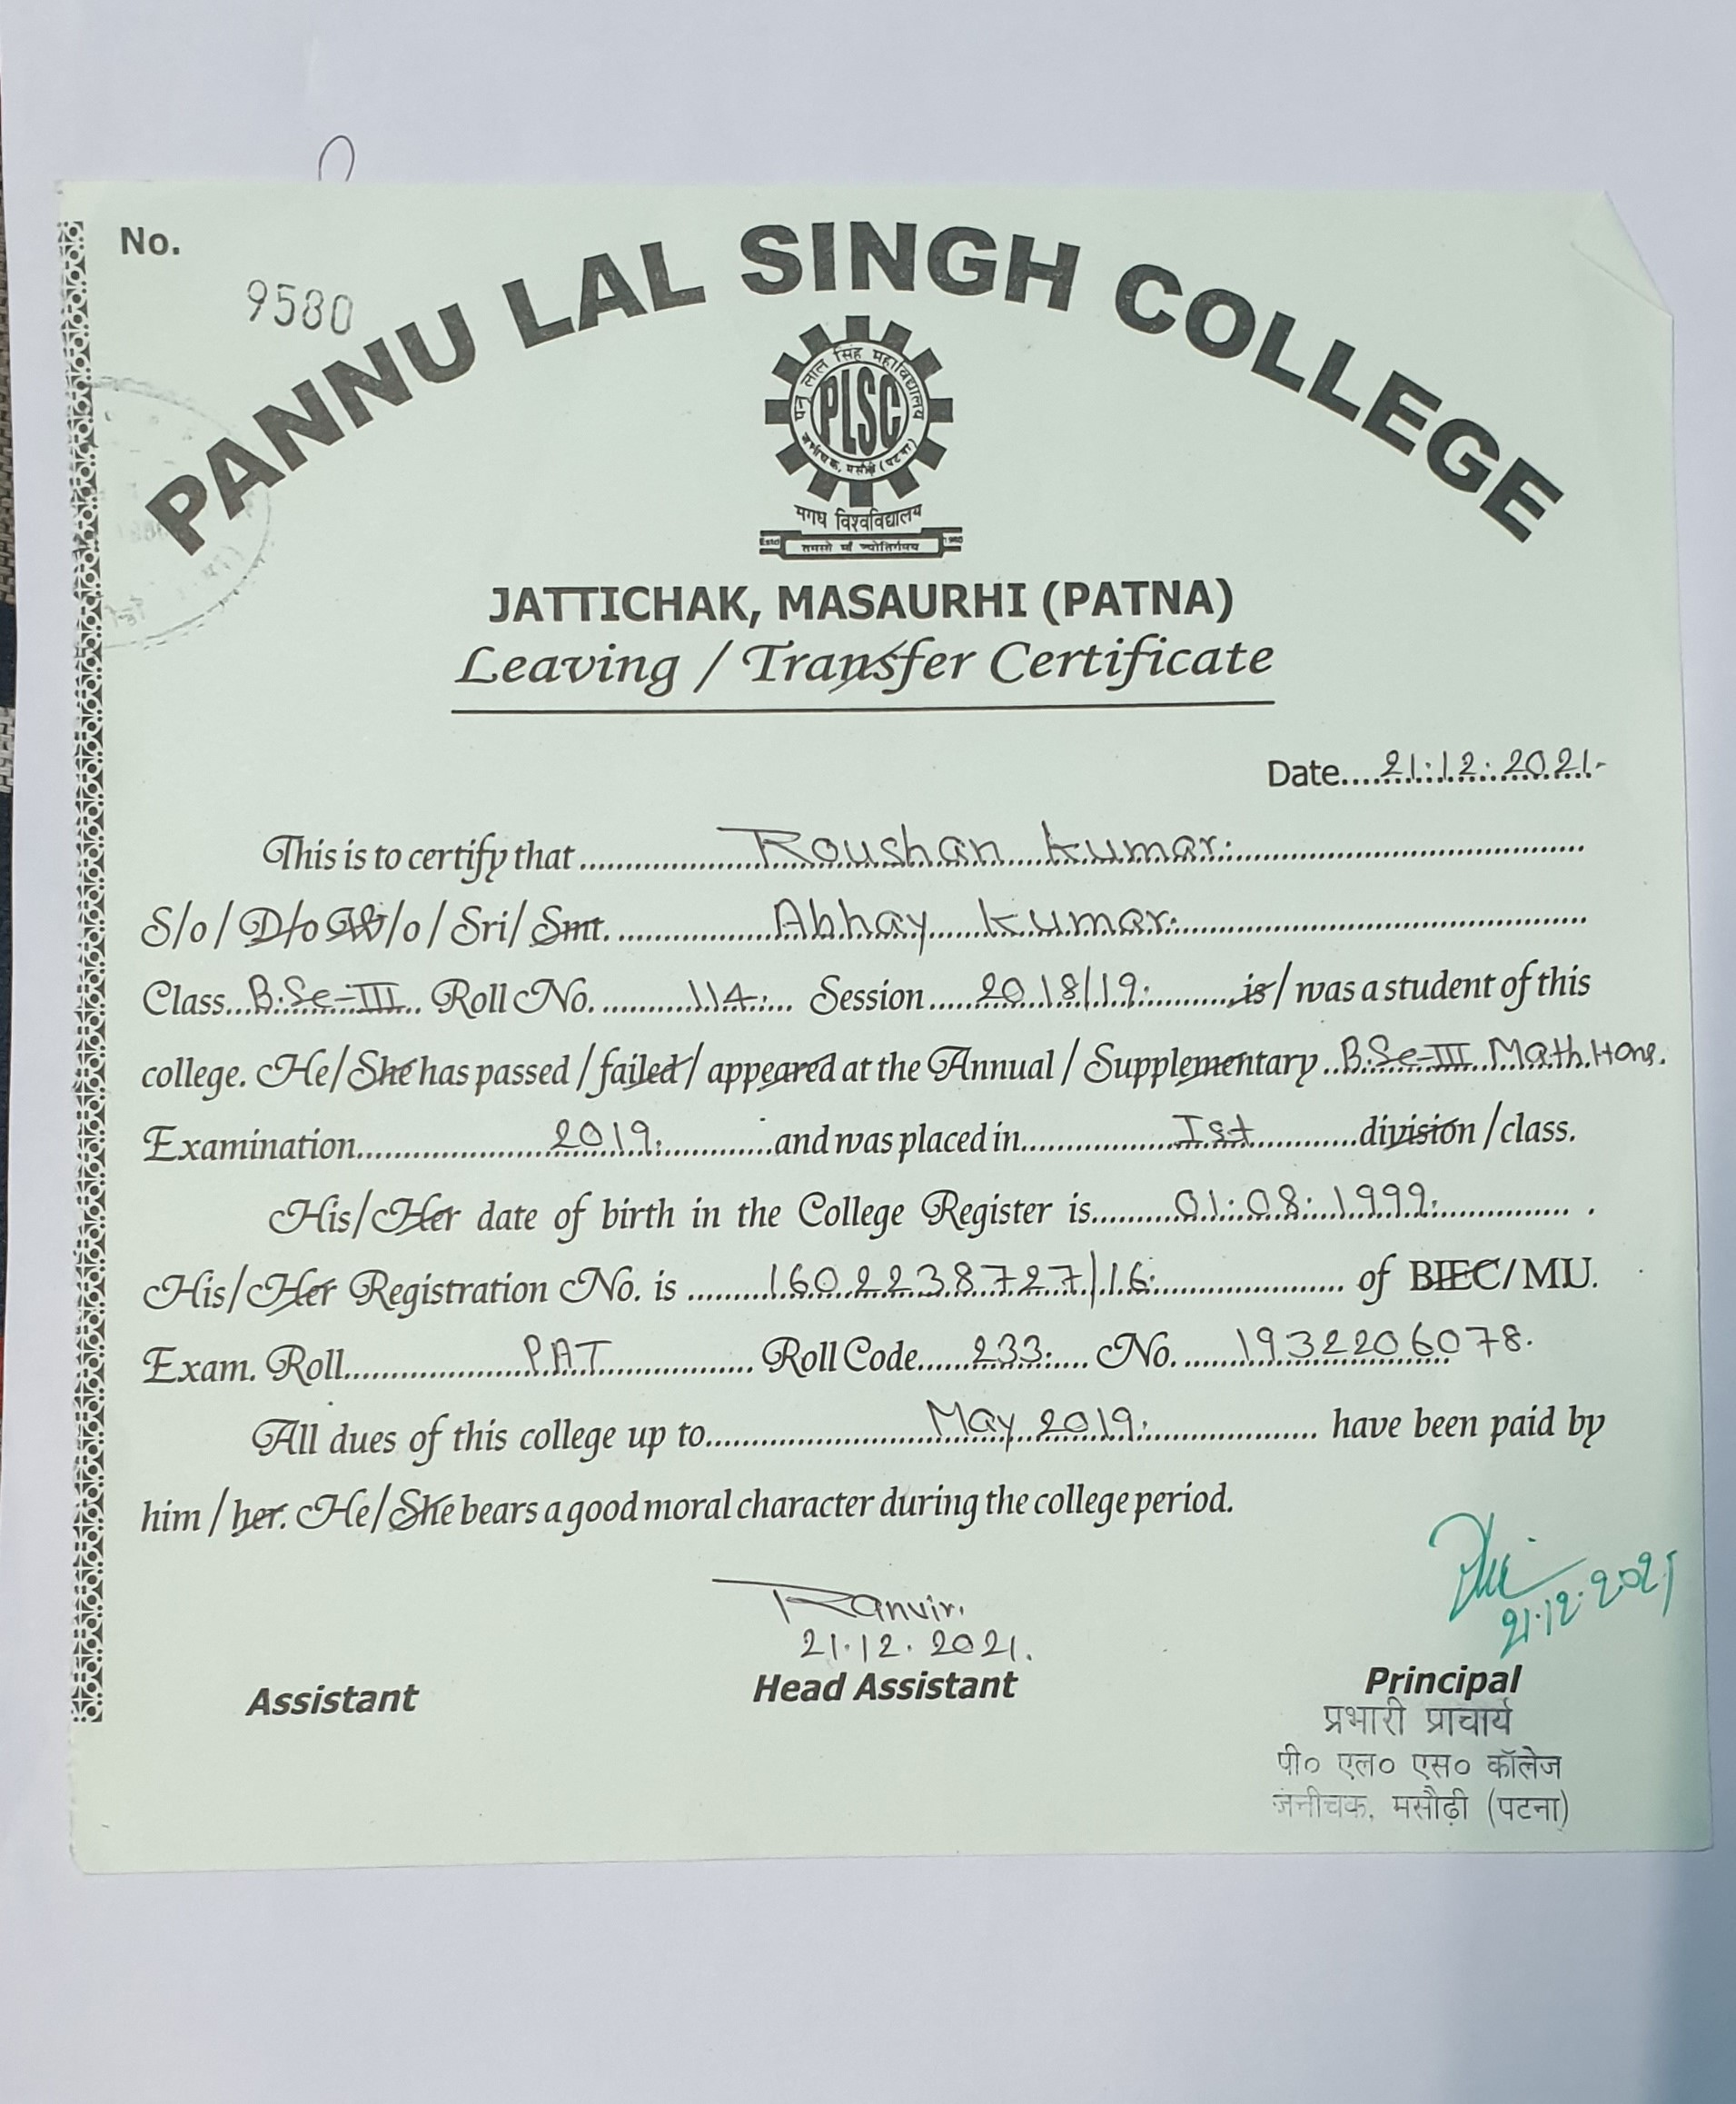 No.
9580
PANNU LAL SINGH COLLEGE
पन्नू लाल सिंह महाविद्यालय
PLSC
जट्टीचक, मसौढ़ी (पटना)
मगध विश्वविद्यालय
Estd तमसो माँ ज्योतिर्गमय
JATTICHAK, MASAURHI (PATNA)
Leaving / Transfer Certificate
Date....21.12.2021.
This is to certify that Roushan Kumar.
S/o / D/o W/o / Sri/ Smt. Abhay Kumar.
Class B.Sc-III Roll No. 114. Session 2018/19. is/ was a student of this
college. He/She has passed / failed / appeared at the Annual / Supplementary B.Sc-III Math.Hons.
Examination 2019. and was placed in Ist division / class.
His/Her date of birth in the College Register is 01.08.1999. .
His/Her Registration No. is 1602238727/16. of BIEC/MU.
Exam. Roll PAT Roll Code 233. No. 1932206078.
All dues of this college up to May 2019. have been paid by
him / her. He/She bears a good moral character during the college period.
21.12.2021
Ranvir.
21.12.2021.
Assistant Head Assistant Principal
प्रभारी प्राचार्य
पी० एल० एस० कॉलेज
मसौढ़ी (पटना)